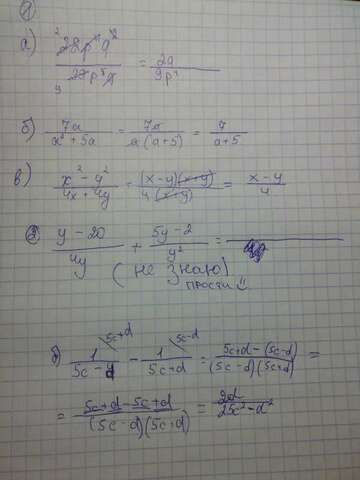 ①
а) 28p⁴q² / 27p⁵q = 2q / 9p
б) 7a / a² + 5a = 7a / a(a+5) = 7 / a+5
в) x² - y² / 4x + 4y = (x-y)(x+y) / 4(x+y) = x-y / 4
② y - 20 / 4y + 5y - 2 / y² =
(не знаю)
прости
б) 1 / 5c - d - 1 / 5c + d = 5c+d - (5c-d) / (5c-d)(5c+d) =
5c+d 5c-d
= 5c+d - 5c+d / (5c-d)(5c+d) = 2d / 25c² - d²